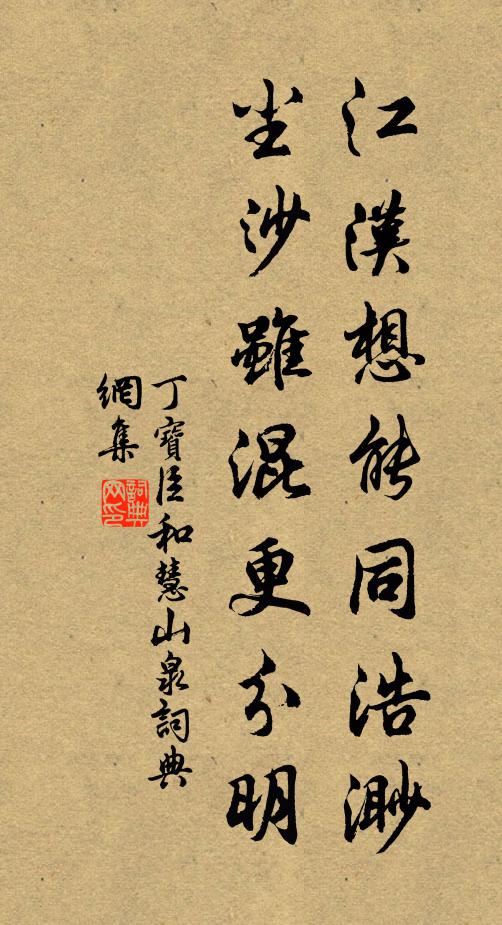 江漢想能同浩渺
尘沙雖混更分明
丁寶臣和慧山泉詞典
網集
詞典
网印